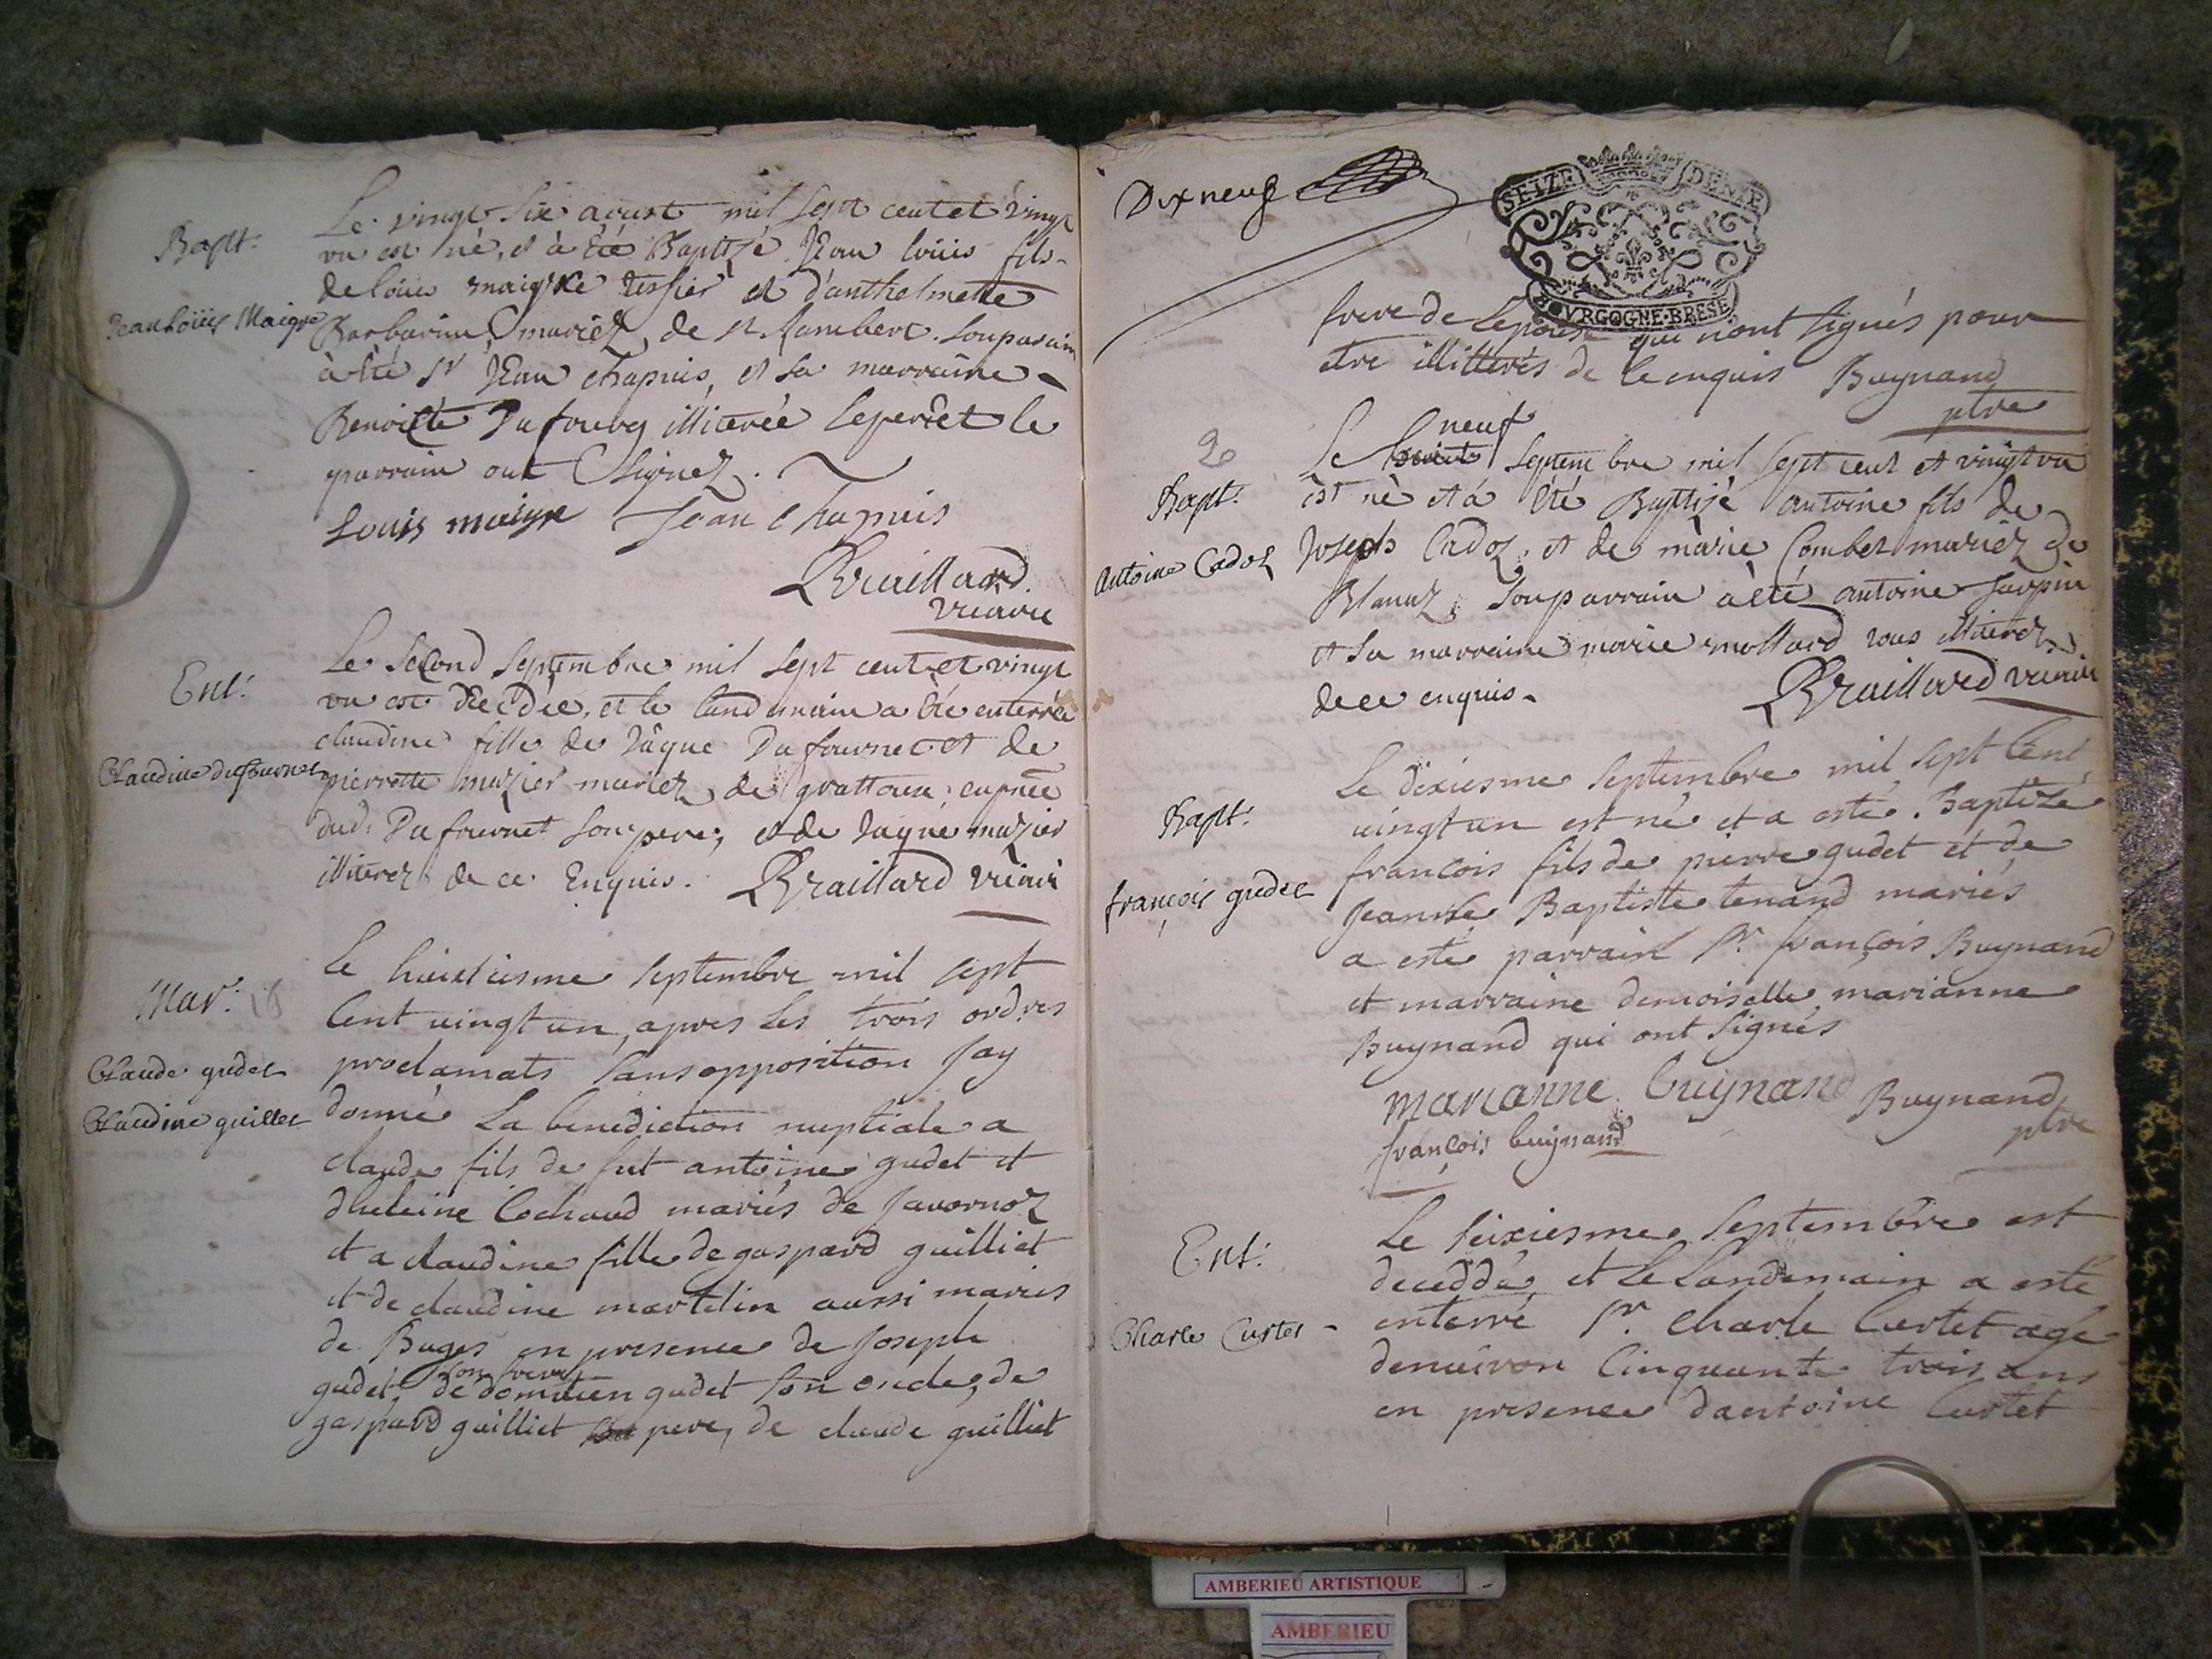 Bapt.
Jean Loüis Maigre
Le vingt six aoust mil sept cent et vingt
vn est né, et à été Baptizé Jean loüis fils
de loüis maigre tissier et d'anthelmette
Barbarin mariez de st Rambert. son parain
à été sr Jean chapuis, et sa marraine
Benoitte Dufourg illiterée le pere et le
parrain ont signez.
Louis maigre Jean Chapuis
Braillard
vicaire
Ent:
Claudine dufournet
Le second septembre mil sept cent et vingt
vn est decedée, et le landemain a été enterrée
claudine fille de Jâque Dufournet et de
pierrette muzier mariez de grattoux, en pnce
dud: Dufournet son pere, et de Jaque muzier
illiterez de ce Enquis. Braillard vicair
Mar:
Claude gudet
Claudine guillet
Le huictiesme septembre mil sept
Cent uingt un, apres les trois ordres
proclamats sans opposition Jay
donné La benediction nuptiale a
claude fils de fut antoine gudet et
dheleine Cochaud mariés de Javornoz
et a claudine fille de gaspard guilliet
et de claudine martelin aussi mariés
de Buges en presence de Joseph
gudet, son frere, de domitien gudet son oncle, de
gaspard guilliet pere, de claude guilliet
Dix neuf
SEIZE DENIE
BOVRGOGNE·BRESE
frere de Lepouse qui nont signés pour
etre illitterés de ce enquis Buynand
ptre
2
Bapt:
Antoine Cadoz
Le neuf septembre mil sept cent et vingt vn
est né et á été Baptizé antoine fils de
Joseph Cadoz, et de marie Combet mariez de
Blanaz, son parrain à été antoine Jarpin
et sa marraine marie mollard tous illiterez
de ce enquis. Braillard vicair
Bapt:
françois gudet
Le dixiesme septembre mil sept Cent
uingt un est né et a esté Baptizé
francois fils de pierre gudet et de
Jeanne Baptiste tenand mariés
a esté parrain sr. françois Buynand
et marraine demoiselle marianne
Buynand qui ont signés
marianne buynand Buynand
ptre
françois buynand
Ent:
Charle Curtet
Le seixiesme septembre est
deceddé, et le Landemain a esté
enterré sr. charle Curtet agé
denuiron Cinquante trois ans
en presence dantoine Curtet
AMBERIEU ARTISTIQUE
AMBERIEU